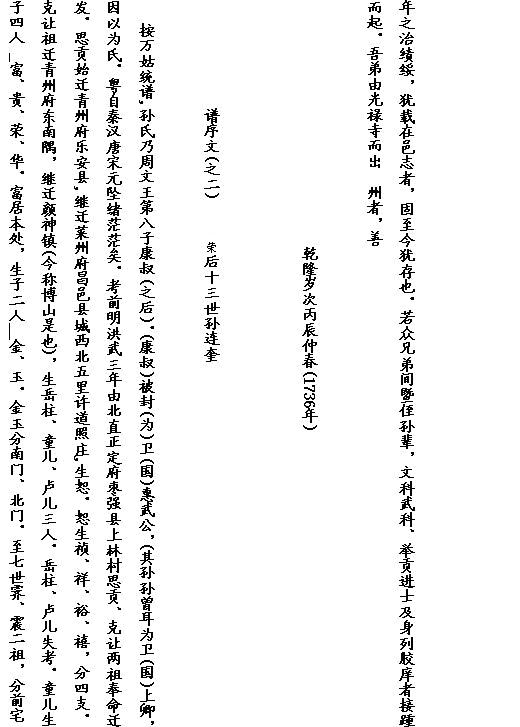 年之治绩绥，犹载在邑志者，固至今犹存也．若众兄弟间暨侄孙辈，文科武科、举贡进士及身列胶庠者接踵
而起．吾弟由光禄寺而出　州者，善
乾隆岁次丙辰仲春(1736年)
谱序文(之二)　　荣后十三世孙连奎
按万姑统谱,孙氏乃周文王第八子康叔(之后)．(康叔)被封(为)卫(国)惠武公，(其孙孙曾耳为卫(国)上卿，
因以为氏．粤自秦汉唐宋元坠绪茫茫矣．考前明洪武三年由北直正定府枣强县上林村思贡、克让两祖奉命迁
发．思贡始迁青州府乐安县,继迁莱州府昌邑县城西北五里许道照庄,生恕．恕生祯、祥、裕、禧，分四支．
克让祖迁青州府东南隅，继迁颜神镇(今称博山是也)，生岳柱、童儿、卢儿三人．岳柱、卢儿失考．童儿生
子四人_富、贵、荣、华．富居本处，生子二人_金、玉．金玉分南门、北门．至七世霁、震二祖，分前宅